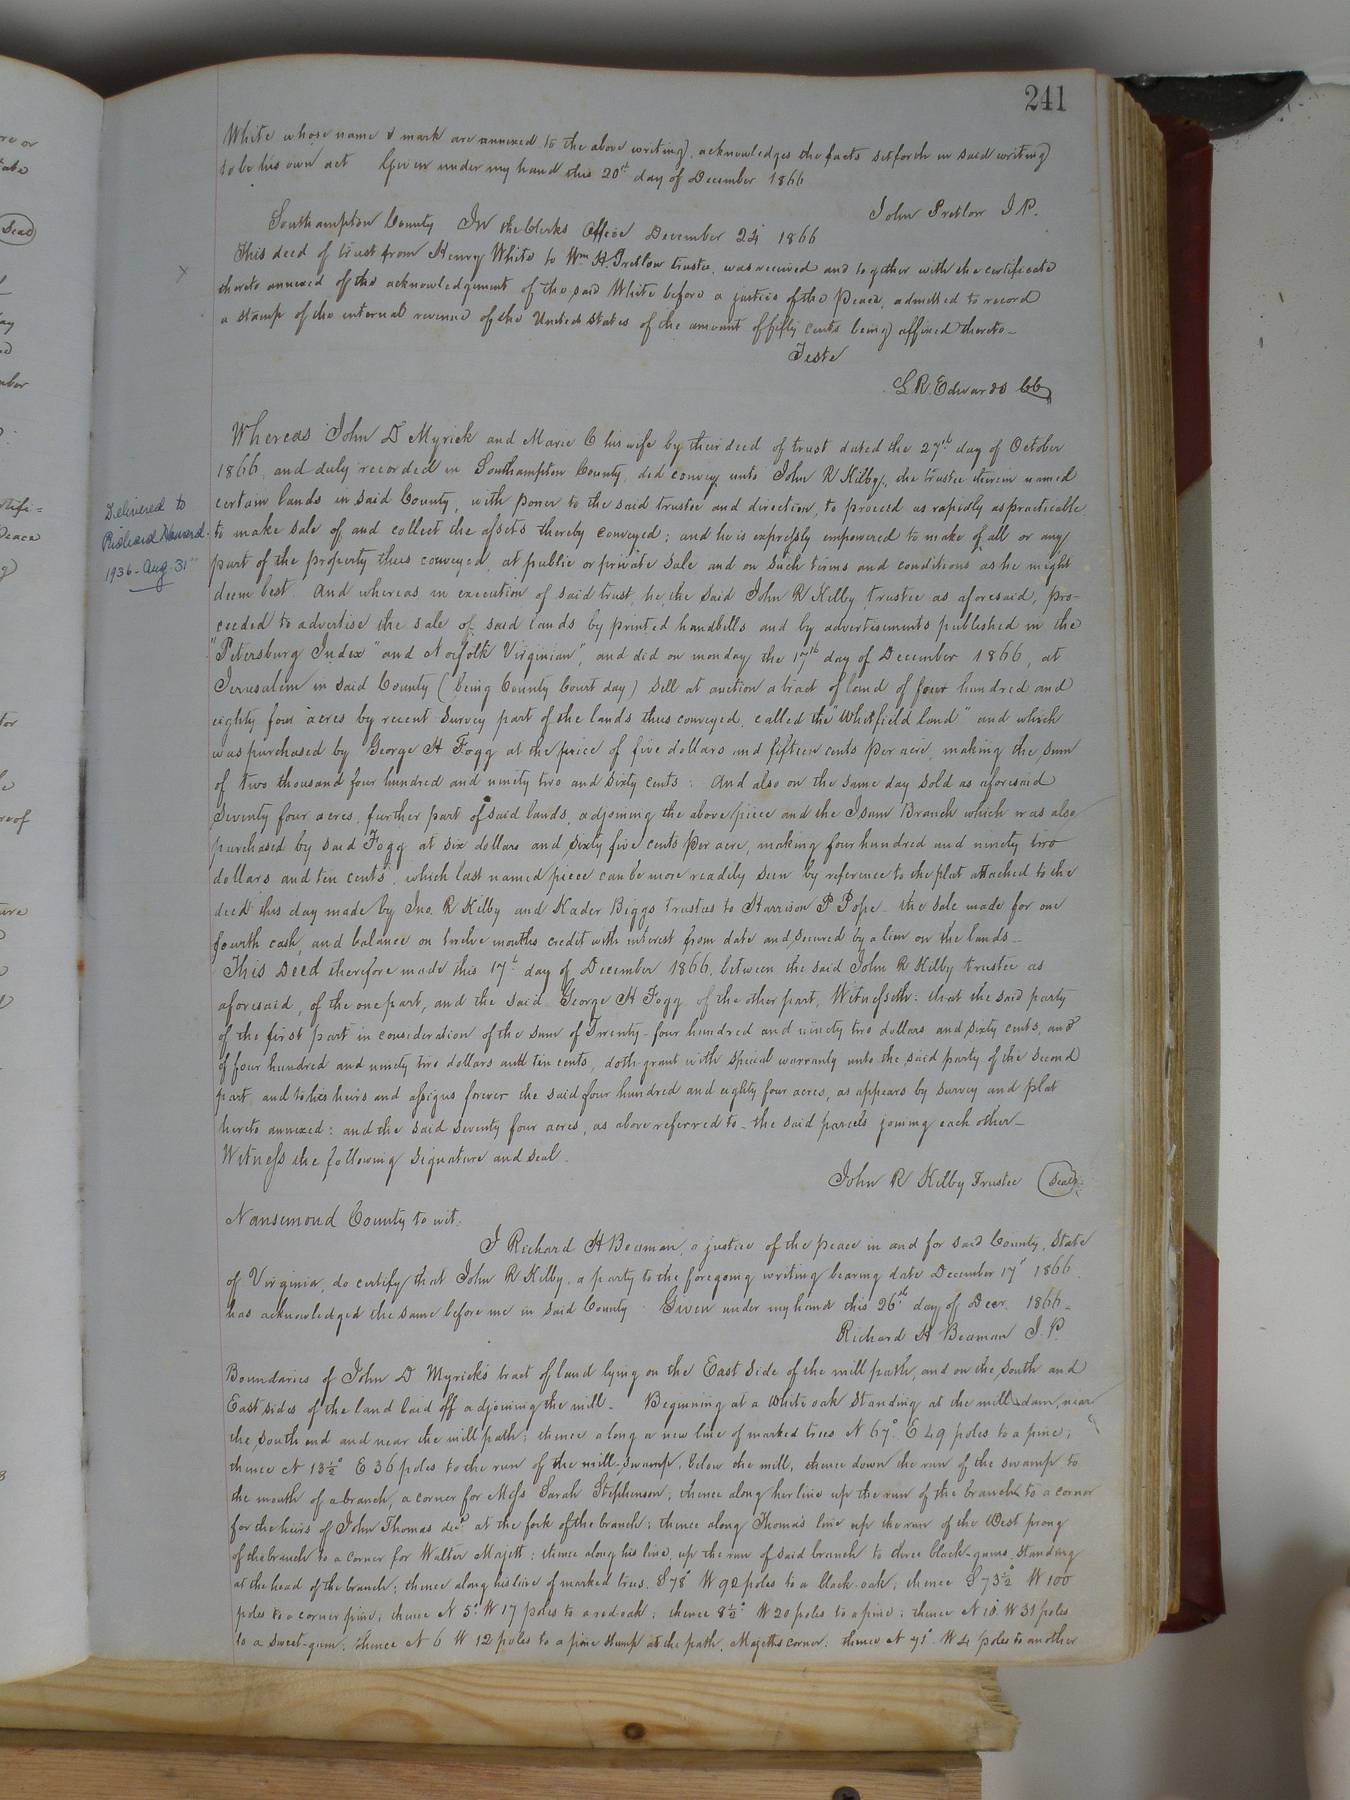 241
White whose name & mark are annexed to the above writing, acknowledges the facts setforth in said writing
to be his own act Given under my hand this 20th day of December 1866
John Pretlow J.P.
Southampton County In the Clerks Office December 24 1866
This deed of trust from Henry White to Wm H Pretlow trustee, was received and together with the certificate
thereto annexed of the acknowledgement of the said White before a justice of the Peace, admitted to record
a stamp of the internal revenue of the United States of the amount of fifty cents being affixed thereto—
Teste
L R Edwards CC
Whereas John D Myrick and Marie C his wife by their deed of trust dated the 27th day of October
1866 and duly recorded in Southampton County, did convey unto John R Kilby, the trustee therein named
certain lands in said County, with power to the said trustee and direction, to proceed as rapidly as practicable
Delivered to
Richard
1936 - Aug. 31"
to make sale of, and collect the assets thereby conveyed; and he is expressly empowered to make of all or any
part of the property thus conveyed, at public or private sale and on such terms and conditions as he might
deem best. And whereas in execution of said trust, he, the said John R Kilby trustee as aforesaid, pro-
ceeded to advertise the sale of said lands by printed handbills and by advertisements published in the
"Petersburg Index" and Norfolk Virginian", and did on monday the 17th day of December 1866, at
Jerusalem in said County (being County Court day) sell at auction a tract of land of four hundred and
eighty four acres by recent survey part of the lands thus conveyed, called the "Whitfield land" and which
was purchased by George H Fogg at the price of five dollars and fifteen cents per acre, making the sum
of two thousand four hundred and ninety two and sixty cents: And also on the same day sold as aforesaid
Seventy four acres, further part of said lands, adjoining the above piece and the Isum Branch which was also
purchased by said Fogg at six dollars and sixty five cents per acre, making four hundred and ninety two
dollars and ten cents, which last named piece can be more readily seen by reference to the plat attached to the
deed this day made by Jno. R Kilby and Kader Biggs trustees to Harrison P Pope- the sale made for one
fourth cash, and balance on twelve months credit with interest from date and secured by a lien on the lands—
This Deed therefore made this 17th day of December 1866, between the said John R Kilby trustee as
aforesaid, of the one part, and the said George H Fogg of the other part, Witnesseth: that the said party
of the first part in consideration of the sum of Twenty-four hundred and ninety two dollars and sixty cents, and
of four hundred and ninety two dollars and ten cents, doth grant with special warranty unto the said party of the second
part, and to his heirs and assigns forever the said four hundred and eighty four acres, as appears by survey and plat
hereto annexed: and the said seventy four acres, as above referred to- the said parcels joining each other—
Witness the following signature and seal.
John R Kilby Trustee (Seal)
Nansemond County to wit.
I Richard H Beaman, a justice of the peace in and for said County, State
of Virginia, do certify that John R Kilby, a party to the foregoing writing bearing date December 17th 1866
has acknowledged the same before me in said County Given under my hand this 26th day of Decr. 1866-
Richard H Beaman J.P.
Boundaries of John D Myrick's tract of land lying on the East side of the mill path, and on the South and
East sides of the land laid off adjoining the mill- Beginning at a White oak standing at the mill-dam, near
the south end and near the mill path; thence along a new line of marked trees N 67° E 49 poles to a pine;
thence N 13½° E 36 poles to the run of the mill-swamp, below the mill, thence down the run of the swamp to
the mouth of a branch, a corner for Mrs Sarah Stephenson; thence along her line up the run of the branch to a corner
for the heirs of John Thomas decd. at the fork of the branch; thence along Thomas's line up the run of the West prong
of the branch to a corner for Walter Majett; thence along his line, up the run of said branch to three black-gums standing
at the head of the branch; thence along his line of marked trees, S 78° W 92 poles to a black-oak; thence S 73½° W 100
poles to a corner pine; thence N 5° W 17 poles to a red-oak; thence 8½° W 20 poles to a pine; thence N W 31 poles
to a sweet-gum; thence N 6 W 12 poles to a pine stump at the path, Majetts corner; thence N 71° W 4 poles to another